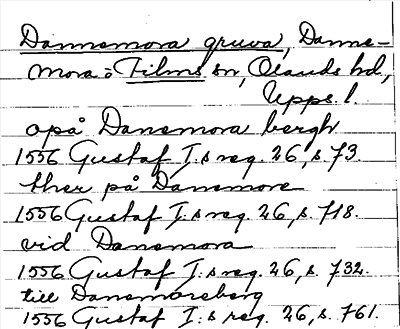 Dannemora gruva, Danne-
mora o. Films sn, Olands hd,
Upps. l.
opå Danemora bergh
1556 Gustaf I:s reg. 26, s. 73.
ther på Danemore
1556 Gustaf I:s reg. 26, s. 718.
vid Danemora
1556 Gustaf I:s reg. 26, s. 732.
till Danemoreberg
1556 Gustaf I:s reg. 26, s. 761.